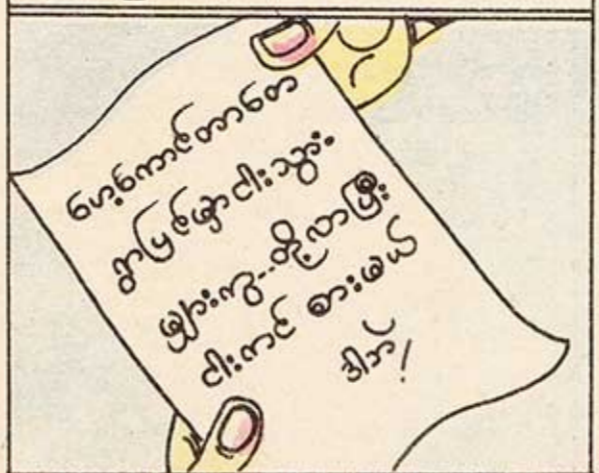 ဟေ့ကောင်တာတေ
ရွာပြင်မှာငါးသွား
မျှားကွ...တို့လာပြီး
ငါးကင် စားမယ်
ဒါဘဲ!